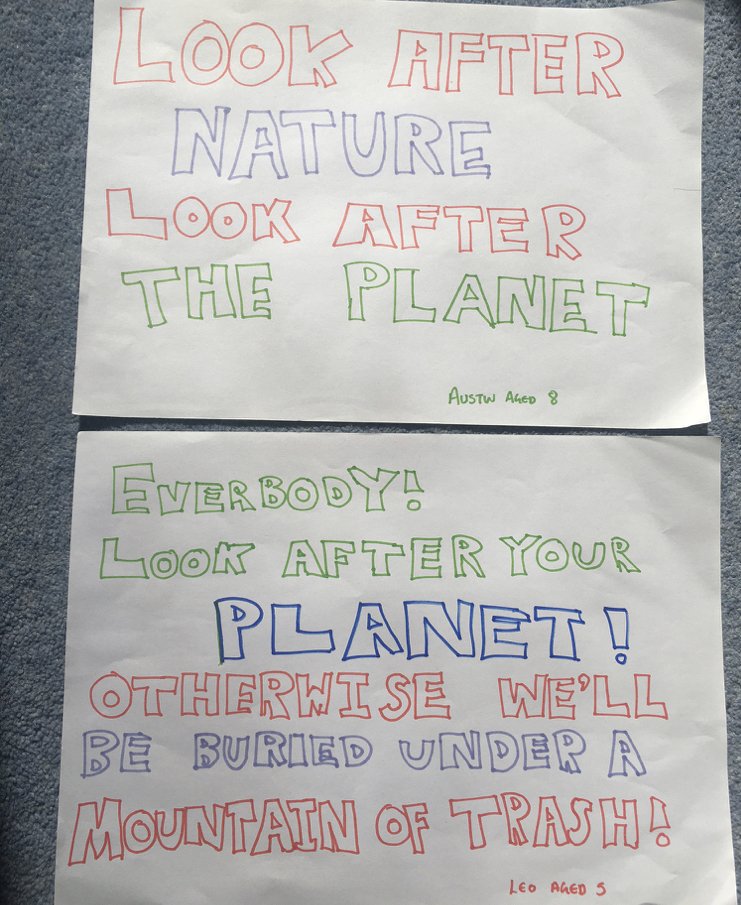 LOOK AFTER
NATURE
LOOK AFTER
THE PLANET
AUSTW AGED 8
EVERBODY!
LOOK AFTER YOUR
PLANET!
OTHERWISE WE'LL
BE BURIED UNDER A
MOUNTAIN OF TRASH!
LEO AGED 5